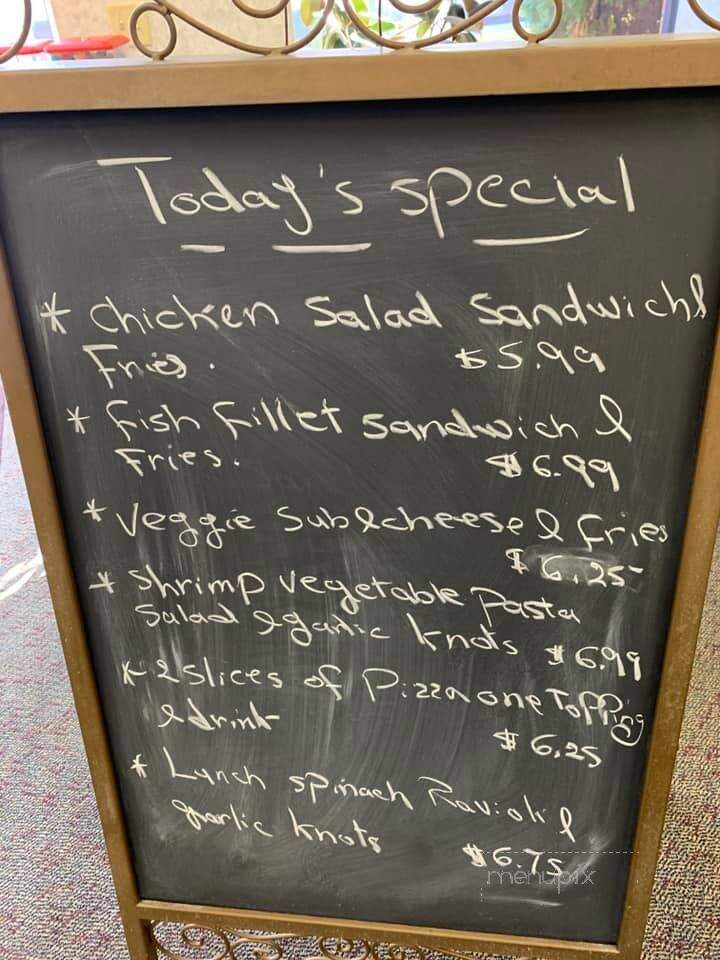 Today's special
* chicken Salad Sandwich &
Fries. $5.99
* fish fillet sandwich &
Fries. $6.99
* Veggie Sub & cheese & fries
$6.25
* Shrimp vegetable Pasta
Salad & garlic knots $6.99
* 2 slices of Pizza one Topping
& drink $6.25
* Lunch spinach Ravioli &
garlic knots $6.75
menupix